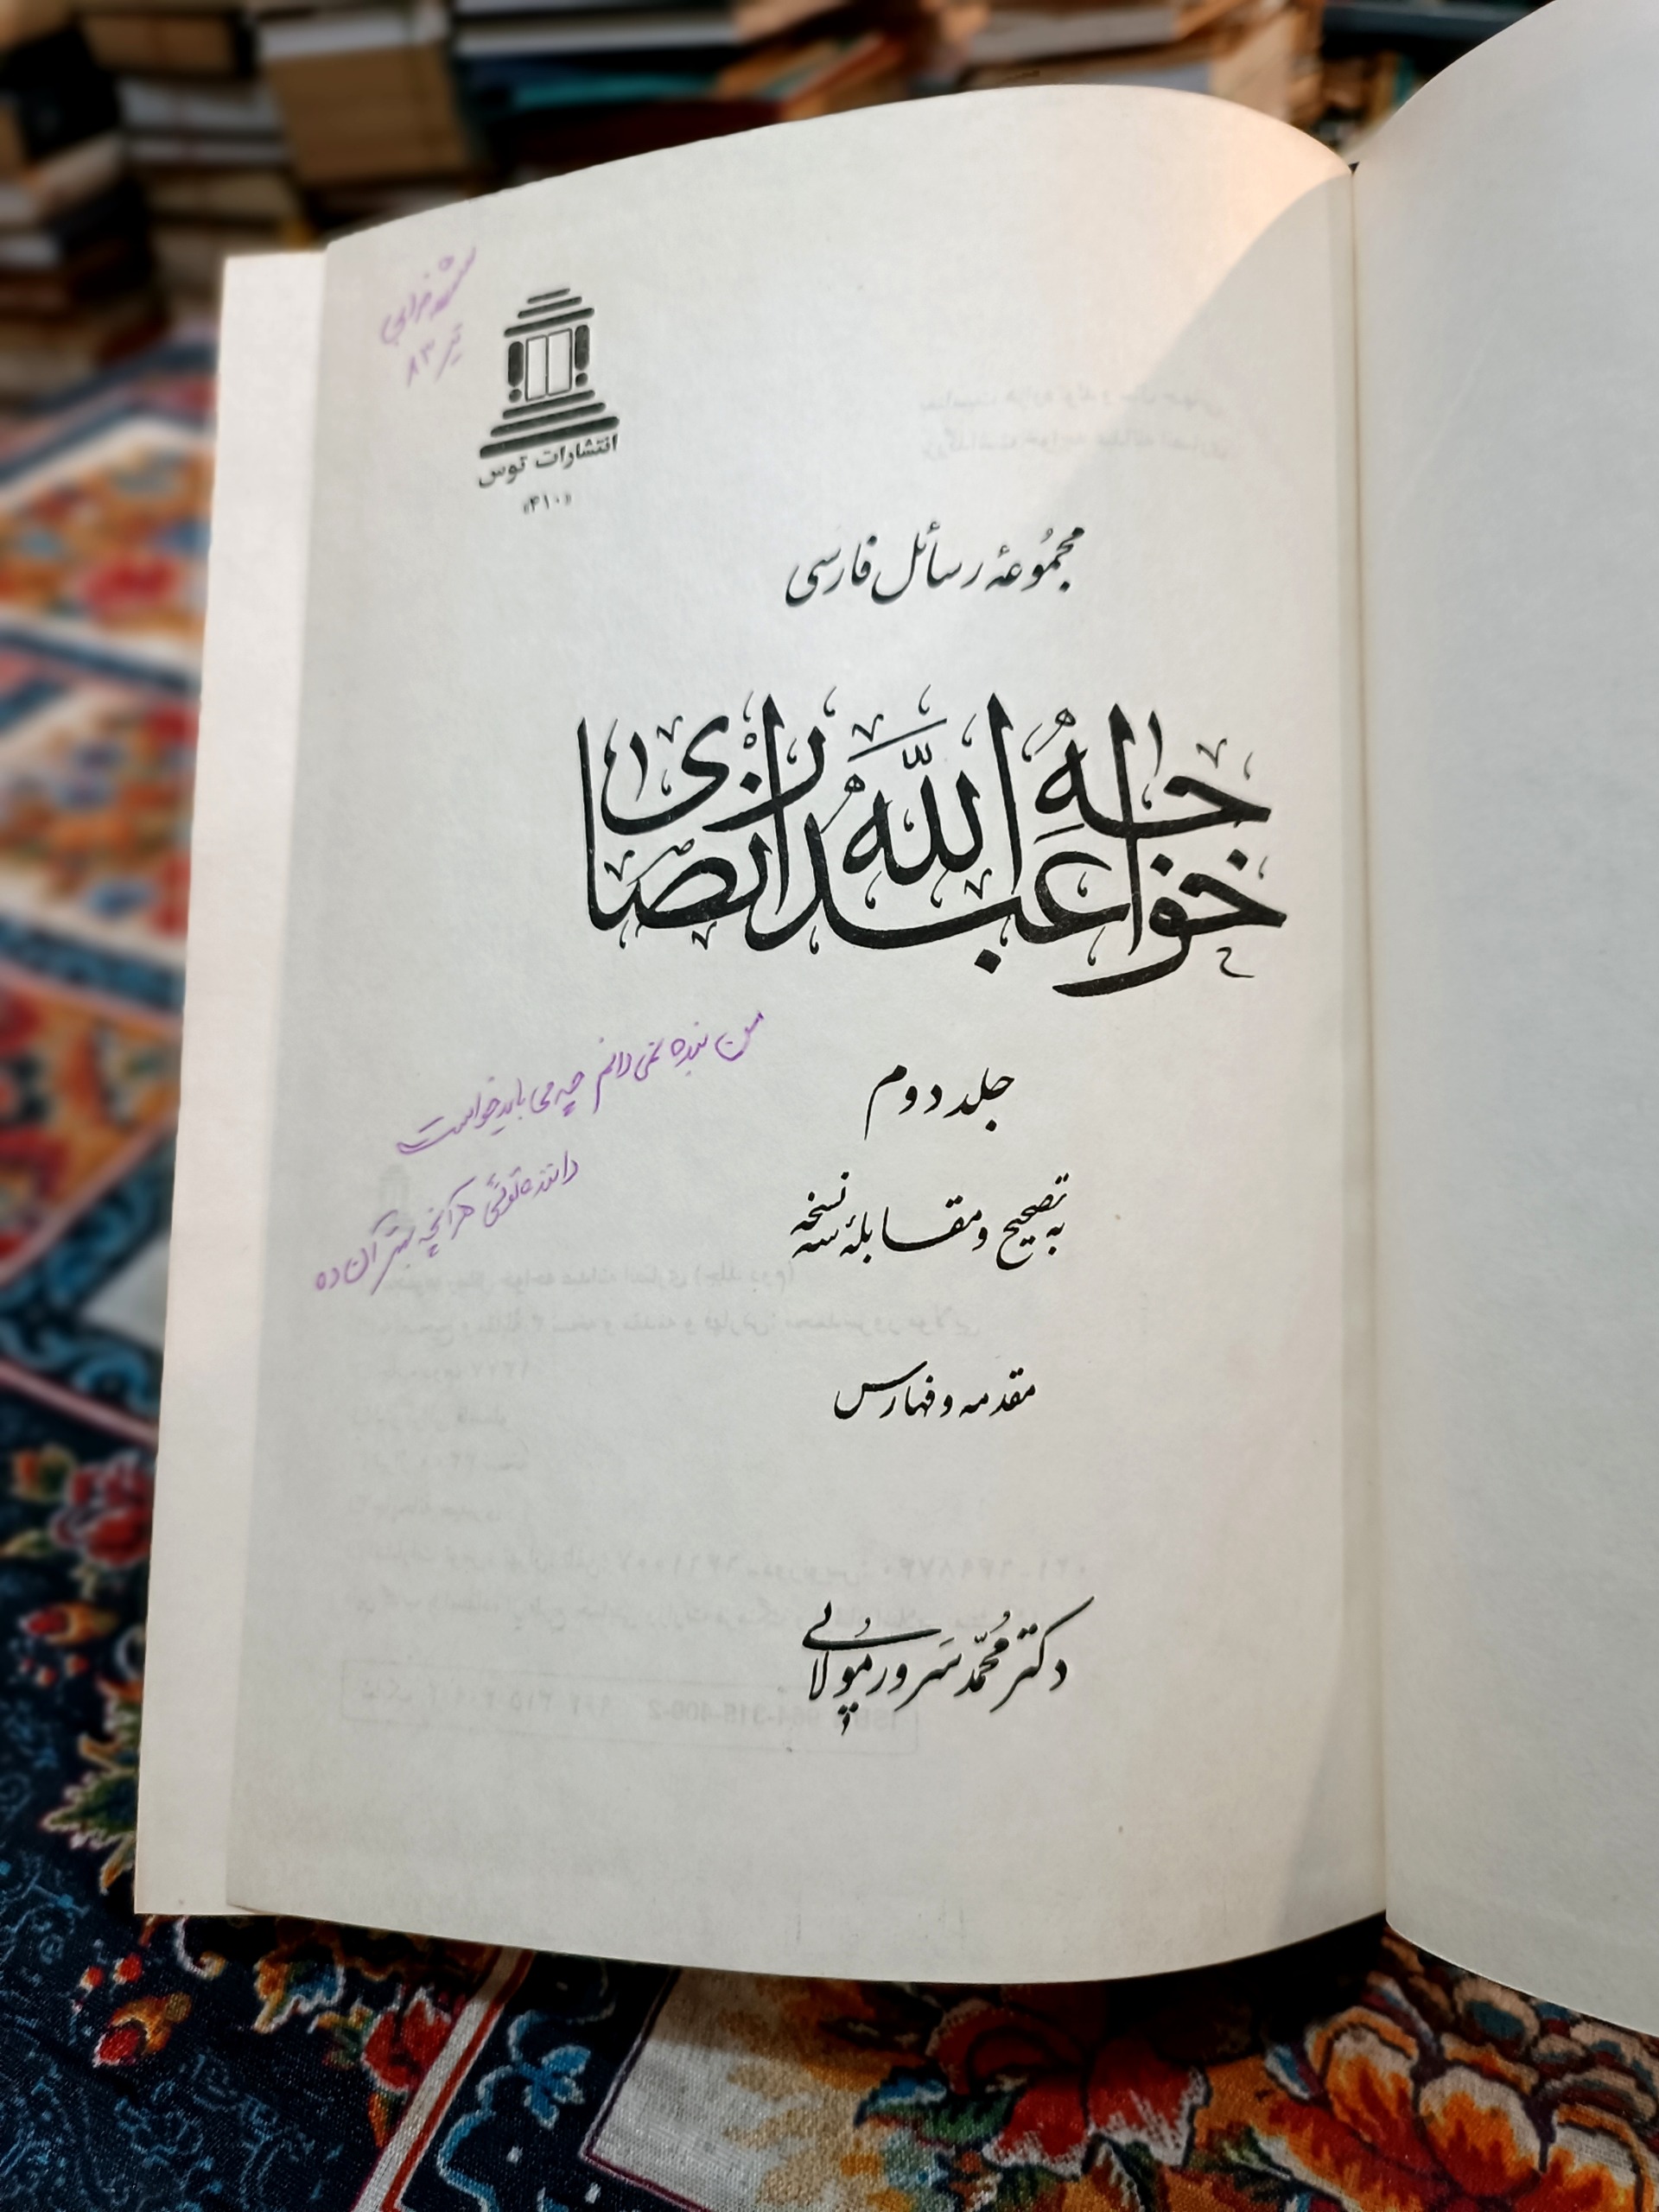 تیر ۸۳
انتشارات توس
«۴۱۰»
مجموعهٔ رسائل فارسی
خواجه عبدالله انصاری
جلد دوم
به تصحیح و مقابلهٔ سه نسخه
مقدمه و فهارس
دکتر محمّد سرور مولایی
من بنده نمی دانم چه می باید خواست
داننده توئی هر آنچه بهتر آن ده